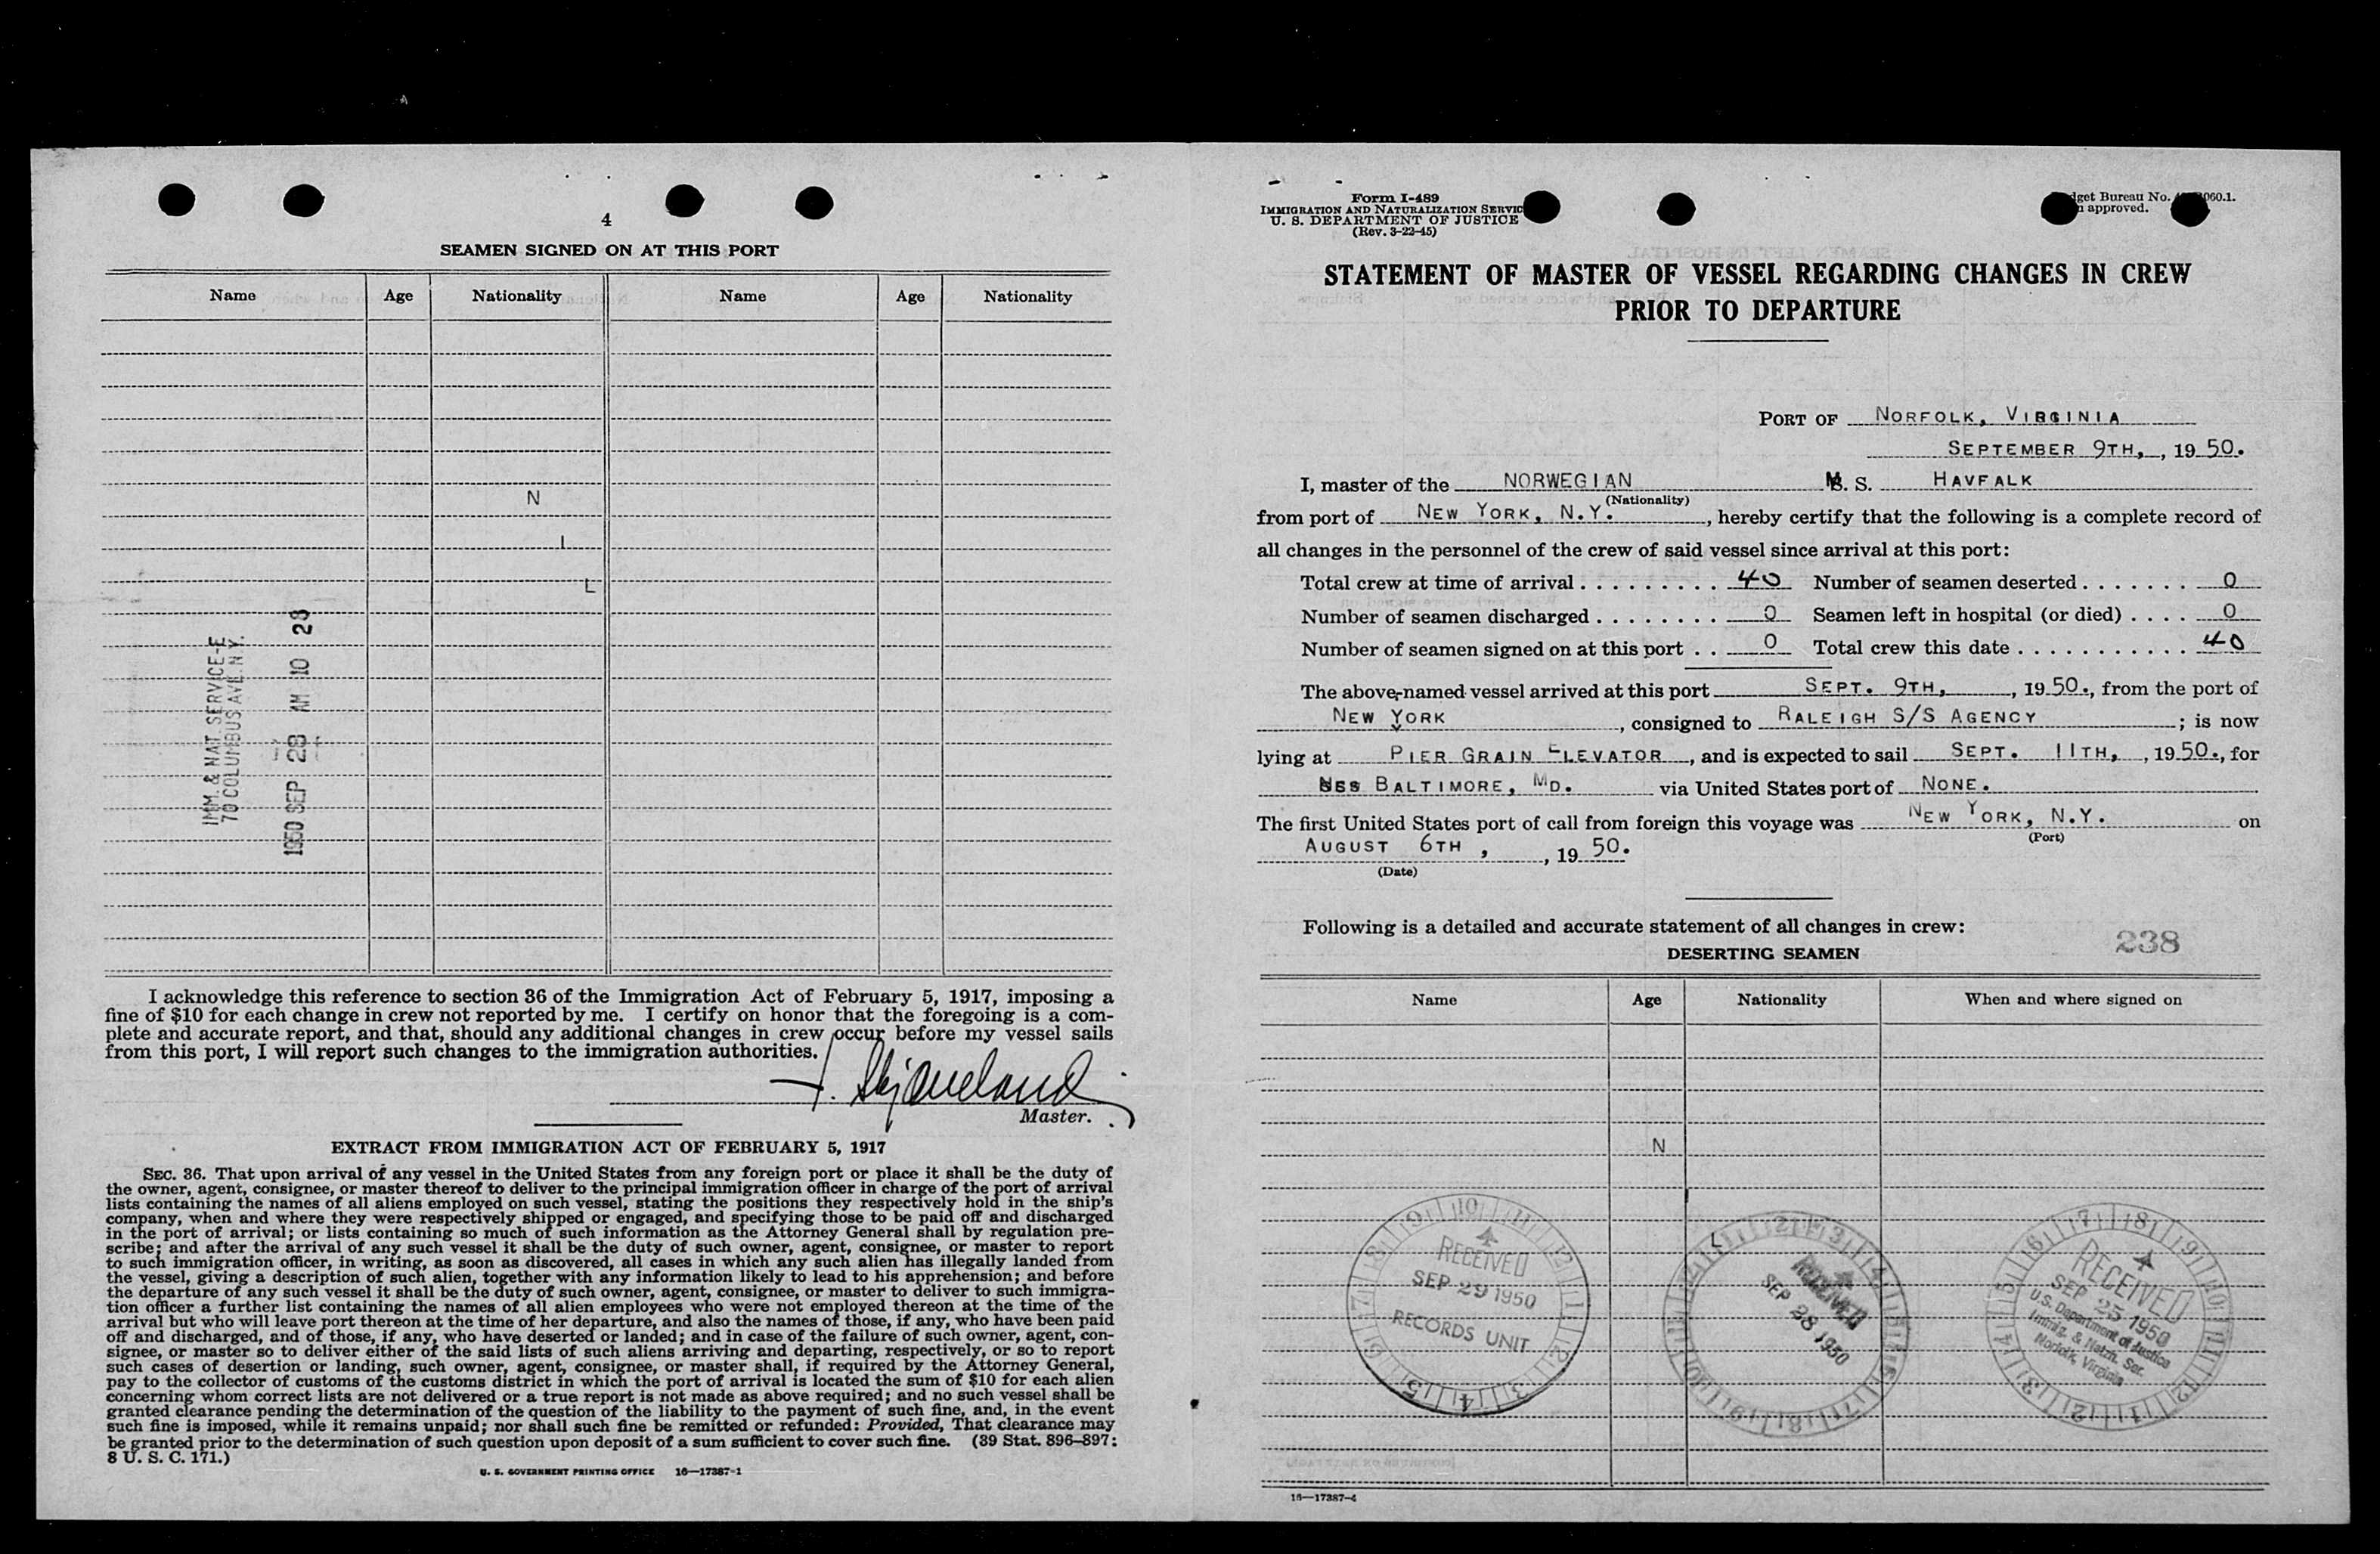 4
SEAMEN SIGNED ON AT THIS PORT
Name Age Nationality Name Age Nationality
N
I
L
IMM. & NAT. SERVICE-E
70 COLUMBUS AVE. N.Y.
1950 SEP 28 AM 10 28
I acknowledge this reference to section 36 of the Immigration Act of February 5, 1917, imposing a
fine of $10 for each change in crew not reported by me. I certify on honor that the foregoing is a com-
plete and accurate report, and that, should any additional changes in crew occur before my vessel sails
from this port, I will report such changes to the immigration authorities.
Master.
EXTRACT FROM IMMIGRATION ACT OF FEBRUARY 5, 1917
SEC. 36. That upon arrival of any vessel in the United States from any foreign port or place it shall be the duty of
the owner, agent, consignee, or master thereof to deliver to the principal immigration officer in charge of the port of arrival
lists containing the names of all aliens employed on such vessel, stating the positions they respectively hold in the ship's
company, when and where they were respectively shipped or engaged, and specifying those to be paid off and discharged
in the port of arrival; or lists containing so much of such information as the Attorney General shall by regulation pre-
scribe; and after the arrival of any such vessel it shall be the duty of such owner, agent, consignee, or master to report
to such immigration officer, in writing, as soon as discovered, all cases in which any such alien has illegally landed from
the vessel, giving a description of such alien, together with any information likely to lead to his apprehension; and before
the departure of any such vessel it shall be the duty of such owner, agent, consignee, or master to deliver to such immigra-
tion officer a further list containing the names of all alien employees who were not employed thereon at the time of the
arrival but who will leave port thereon at the time of her departure, and also the names of those, if any, who have been paid
off and discharged, and of those, if any, who have deserted or landed; and in case of the failure of such owner, agent, con-
signee, or master so to deliver either of the said lists of such aliens arriving and departing, respectively, or so to report
such cases of desertion or landing, such owner, agent, consignee, or master shall, if required by the Attorney General,
pay to the collector of customs of the customs district in which the port of arrival is located the sum of $10 for each alien
concerning whom correct lists are not delivered or a true report is not made as above required; and no such vessel shall be
granted clearance pending the determination of the question of the liability to the payment of such fine, and, in the event
such fine is imposed, while it remains unpaid; nor shall such fine be remitted or refunded: Provided, That clearance may
be granted prior to the determination of such question upon deposit of a sum sufficient to cover such fine. (39 Stat. 896–897;
8 U. S. C. 171.)
U. S. GOVERNMENT PRINTING OFFICE 16—17387-1
Form I-489
IMMIGRATION AND NATURALIZATION SERVIC
U. S. DEPARTMENT OF JUSTICE
(Rev. 3-22-45)
Bureau No. 060.1.
approved.
STATEMENT OF MASTER OF VESSEL REGARDING CHANGES IN CREW
PRIOR TO DEPARTURE
PORT OF NORFOLK, VIRGINIA
SEPTEMBER 9TH, , 19 50.
I, master of the NORWEGIAN M. S. HAVFALK
(Nationality)
from port of NEW YORK, N.Y. , hereby certify that the following is a complete record of
all changes in the personnel of the crew of said vessel since arrival at this port:
Total crew at time of arrival . . . . . . . . . 40 Number of seamen deserted . . . . . . . 0
Number of seamen discharged . . . . . . . . 0 Seamen left in hospital (or died) . . . . 0
Number of seamen signed on at this port . . 0 Total crew this date . . . . . . . . . . . 40
The above-named vessel arrived at this port SEPT. 9TH, , 19 50., from the port of
NEW YORK , consigned to RALEIGH S/S AGENCY ; is now
lying at PIER GRAIN ELEVATOR , and is expected to sail SEPT. 11TH, , 19 50., for
BALTIMORE, MD. via United States port of NONE.
The first United States port of call from foreign this voyage was NEW YORK, N.Y. on
(Port)
AUGUST 6TH , , 19 50.
(Date)
Following is a detailed and accurate statement of all changes in crew:
238
DESERTING SEAMEN
Name Age Nationality When and where signed on
N
I
L
RECEIVED
SEP 29 1950
RECORDS UNIT
RECEIVED
SEP 28 1950
RECEIVED
SEP 25 1950
U.S. Department of Justice
Immig. & Natzn. Ser.
Norfolk, Virginia
16—17387-4